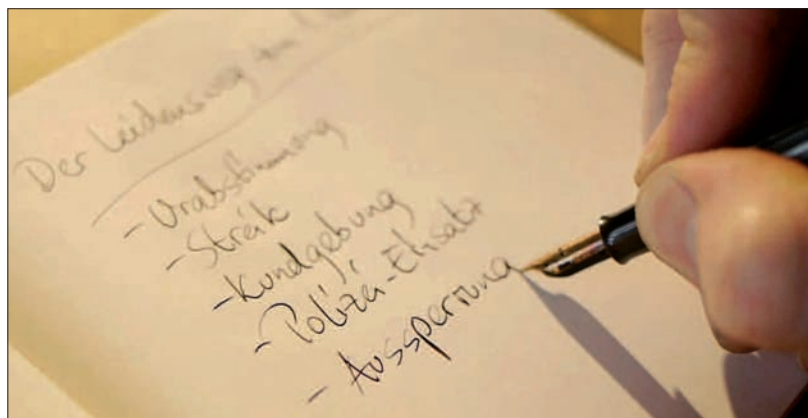 Der Leidensweg
- Urabstimmung
- Streik
- Kundgebung
- Polizei-Einsatz
- Aussperrung